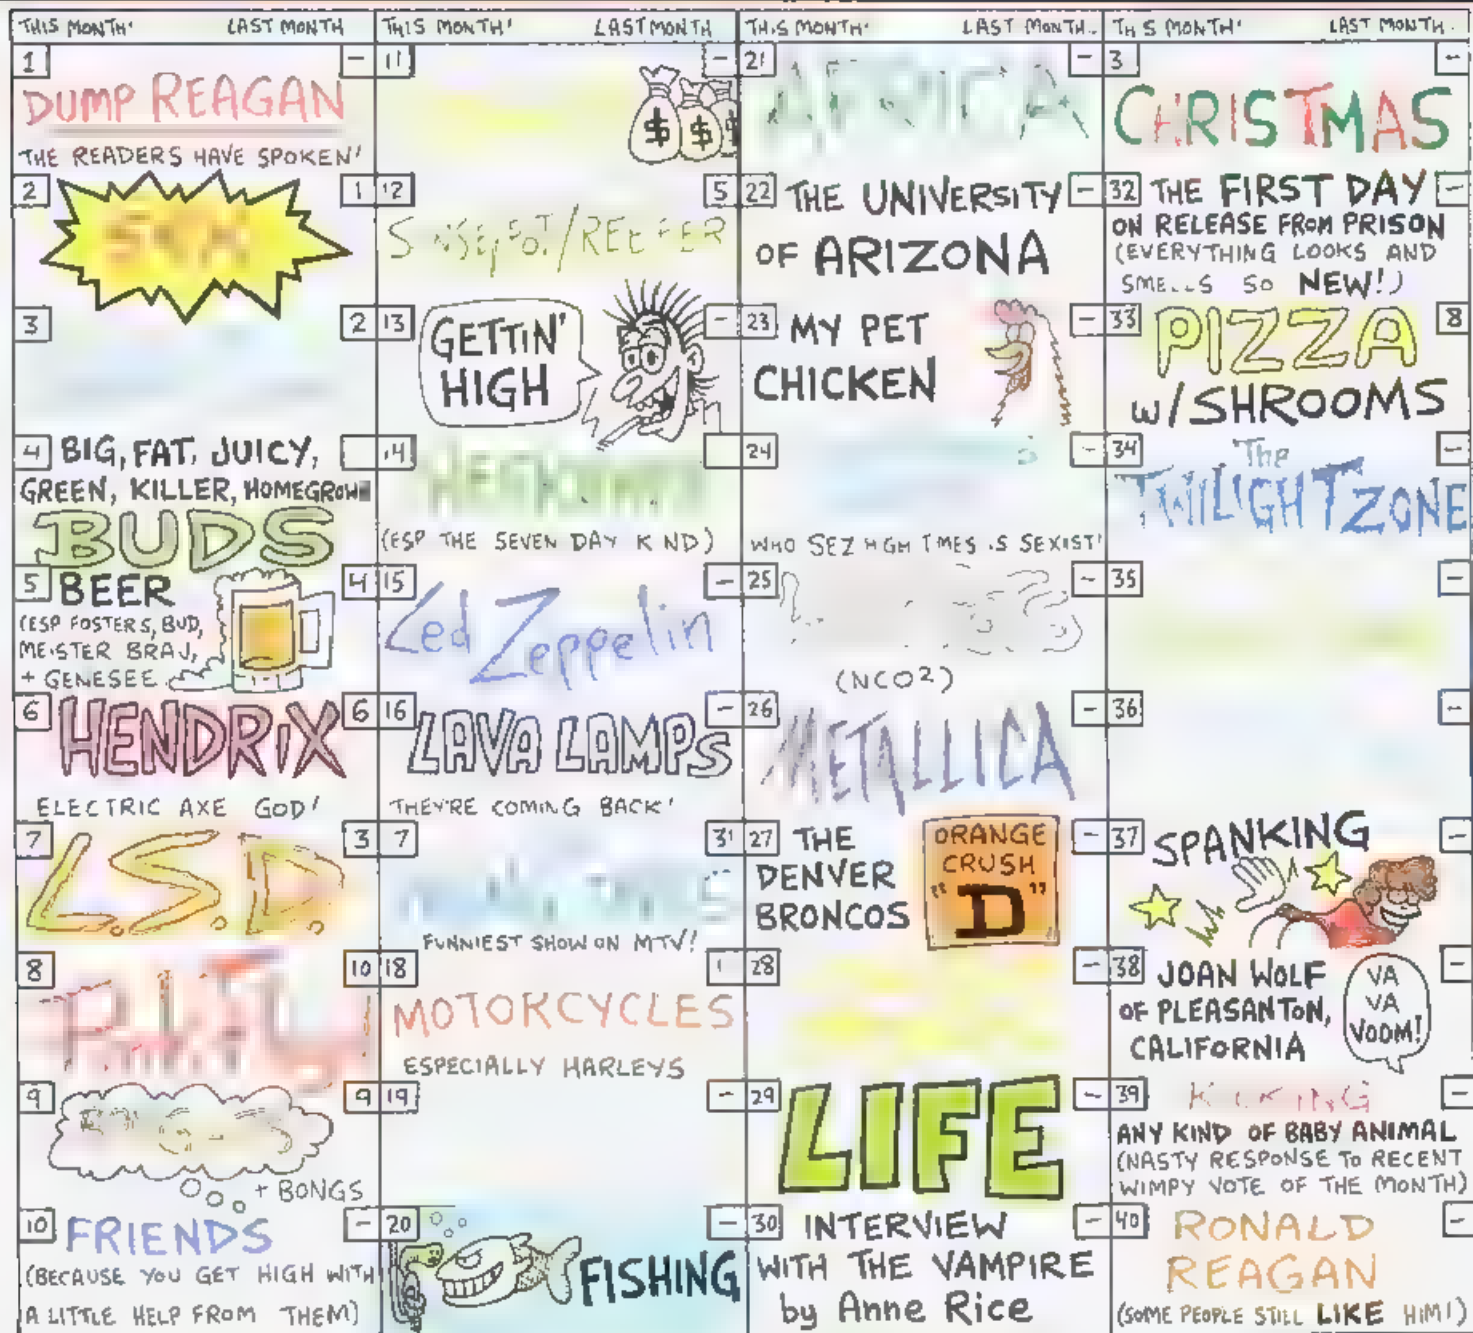 THIS MONTH! LAST MONTH
1 -
DUMP REAGAN
THE READERS HAVE SPOKEN!
2 1
SEX
3 2
4
BIG, FAT, JUICY,
GREEN, KILLER, HOMEGROWN
BUDS
5 4
BEER
(ESP FOSTERS, BUD,
MEISTER BRAU,
+ GENESEE
6 6
HENDRIX
ELECTRIC AXE GOD!
7 3
L.S.D.
8 10
9 9
+ BONGS
10 -
FRIENDS
(BECAUSE YOU GET HIGH WITH
A LITTLE HELP FROM THEM)
THIS MONTH! LAST MONTH
11 -
$ $ $
12 5
/REEFER
13 -
GETTIN'
HIGH
14
(ESP THE SEVEN DAY KIND)
15 -
Led Zeppelin
16 -
LAVA LAMPS
THEY'RE COMING BACK!
7 31
FUNNIEST SHOW ON MTV!
18 1
MOTORCYCLES
ESPECIALLY HARLEYS
19 -
20 -
FISHING
THIS MONTH! LAST MONTH
21 -
AFRICA
22 -
THE UNIVERSITY
OF ARIZONA
23 -
MY PET
CHICKEN
24 -
WHO SEZ HIGH TIMES IS SEXIST!
25 -
(NCO2)
26 -
METALLICA
27 -
THE
DENVER
BRONCOS
ORANGE
CRUSH
"D"
28 -
29 -
LIFE
30 -
INTERVIEW
WITH THE VAMPIRE
by Anne Rice
THIS MONTH! LAST MONTH
3 -
CHRISTMAS
32 -
THE FIRST DAY
ON RELEASE FROM PRISON
(EVERYTHING LOOKS AND
SMELLS SO NEW!)
33 8
PIZZA
w/SHROOMS
34 -
The
TWILIGHT ZONE
35 -
36 -
37 -
SPANKING
38 -
JOAN WOLF
OF PLEASANTON,
CALIFORNIA
VA
VA
VOOM!
39 -
KICKING
ANY KIND OF BABY ANIMAL
(NASTY RESPONSE TO RECENT
WIMPY VOTE OF THE MONTH)
40 -
RONALD
REAGAN
(SOME PEOPLE STILL LIKE HIM!)